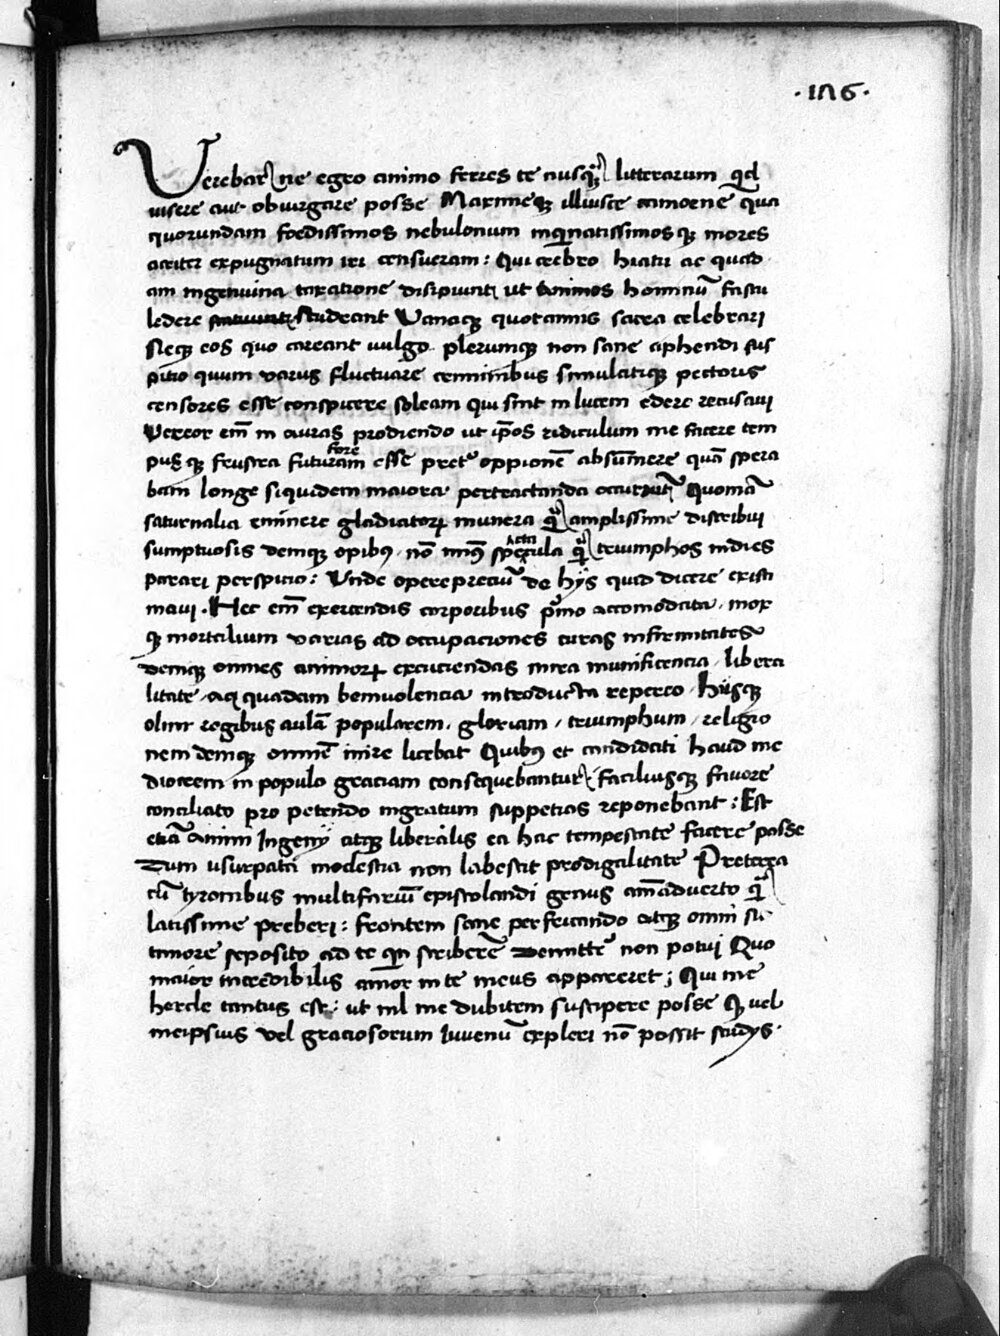 ·126·
Verebar ne egro animo ferres te nusq̃ litterarum qd
visere aut obiurgare posse Maximeqʒ illiusce camoene qua
quorundam foedissimos nebulonum inquinatissimosqʒ mores
acriter expugnatum iri censueram: Qui crebro hiatu ac quad
am ingenuina taxatione desipiunt ut animos hominũ fastu
ledere studeant Vanaqʒ quotannis sacra celebrari
Neqʒ eos quo careant vulgo plerumqʒ non sane aphendi sus
pitio quum varus fluctuare cernimibus simulatiqʒ pectoris
censores esse conspicere soleam qui sint in lucem edere recusavi
Vereor em̃ in auras prodiendo ut ip̃os ridiculum me facere tem
pusqʒ frustra futuram fore esse pret oppionẽ absumere quã spera
bam longe siquidem maiora pertractanda occurrunt Quoniã
saturnalia eminere gladiatorꝝ munera q̃ amplissime distribui
sumptuosis demqʒ opibꝰ non minꝰ spectacula q̃ triumphos indies
parari perspicio: Unde opere preciũ de hijs quid dicere existi
mavi. Hec em̃ exercendis corporibus pĩmo accomodata, mox
qʒ mortalium varias ad occupaciones curas infirmitates
demqʒ omnes animorꝝ excuciendas mira munificencia, libera
litate, aqʒ quadam benivolencia introducta reperio, hijsqʒ
olim regibus aulã popularem, gloriam, triumphum, religio
nem demqʒ omnẽ inire licebat Quibꝰ et candidati haud me
diocrem in populo graciam consequebantur, faciliusqʒ favore
conciliato pro petendo ingratum suppetias reponebant: Est
eciã animi Ingenij atqʒ liberalis ea hac tempestate facere posse
Dum usurpata modestia non labescit prodigalitate Preterea
cũ tyronibus multifariũ epistolandi genus aĩmadverto q̃
latissime preberi: frontem sane perfricando atqʒ omni
timore seposito ad te q̃n scriberẽ Demitte non potui Quo
maior incredibilis amor in te meus appareret; Qui me
hercle tantus est: ut nil me dubitem suscipere posse q̃ vel
meipsius vel graciosorum iuvenũ expleri nõ possit studijs.